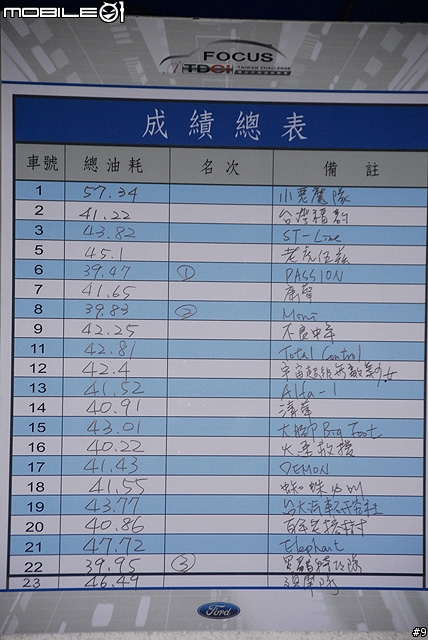 MOBILE01
FOCUS
TDCi TAIWAN CHALLENGE
成績總表
車號 總油耗 名次 備註
1 57.34 小惡魔隊
2 41.22
3 43.82 ST-Line
5 45.1
6 39.47 ① PASSION
7 41.65
8 39.83 ② Moni
9 42.25 不良中年
11 42.81 Total Control
12 42.4 宇宙超級無敵美少女
13 41.52 Alfa-1
14 40.91 清華
15 43.01 大腳 Big Foot
16 40.22 火柴救援
17 41.43 DEMON
18 41.55 蜘蛛
19 43.77
20 40.86
21 47.72 Elephant
22 39.95 ③
23 46.49
Ford
#9